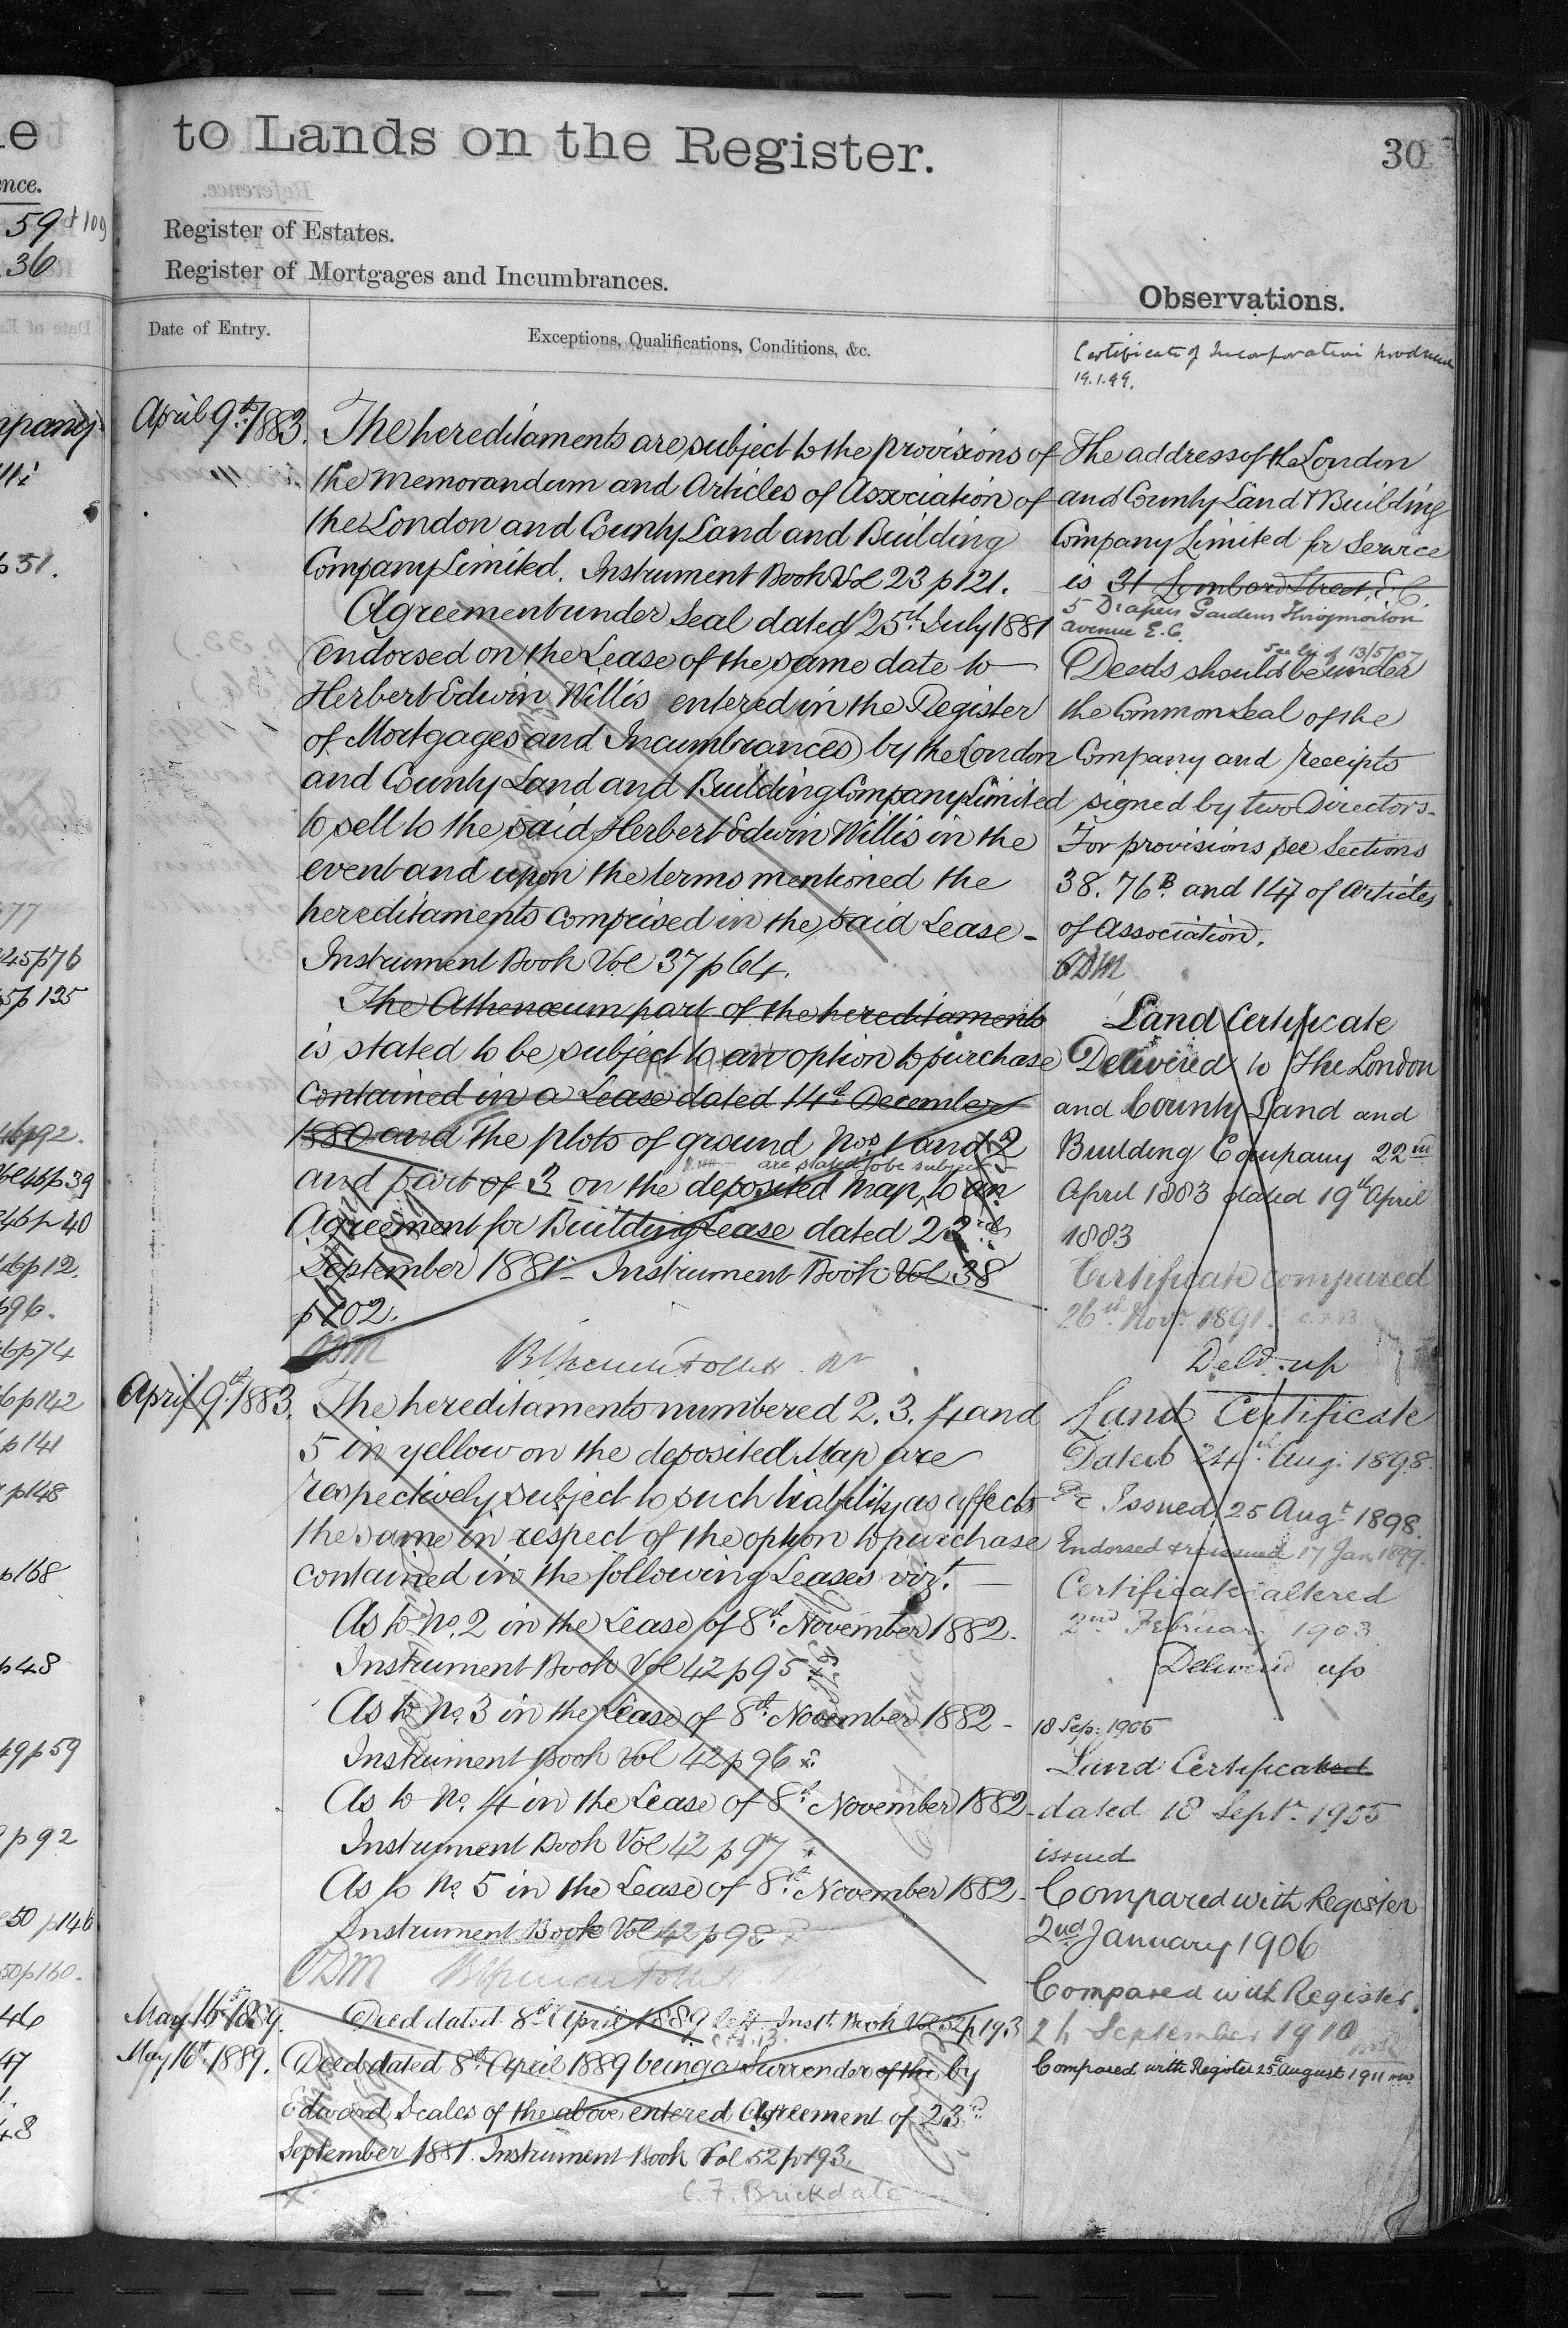 to Lands on the Register.
30
Register of Estates.
Register of Mortgages and Incumbrances.
Observations.
Date of Entry.
Exceptions, Qualifications, Conditions, &c.
Certificate of Incorporation produced
19.1.99.
April 9th 1883.
The hereditaments are subject to the provisions of
the Memorandum and Articles of Association of
the London and County Land and Building
Company Limited. Instrument Book Vol 23 p 121.
Agreement under Seal dated 25th July 1881
(endorsed on the Lease of the same date to
Herbert Edwin Willis entered in the Register
of Mortgages and Incumbrances) by the London
and County Land and Building Company Limited
to sell to the said Herbert Edwin Willis in the
event and upon the terms mentioned the
hereditaments comprised in the said Lease -
Instrument Book Vol 37 p 64.
The Athenæum part of the hereditaments
is stated to be subject to an option to purchase
contained in a Lease dated 14th December
1880 and the plots of ground Nos 1 and 2
are stated to be subject
and part of 3 on the deposited map, to an
Agreement for Building Lease dated 23rd
September 1881 - Instrument Book Vol 38
p 102.
ODM
April 9th 1883.
The hereditaments numbered 2. 3. 4 and
5 in yellow on the deposited Map are
respectively subject to such liability as affects
the same in respect of the option to purchase
contained in the following Leases vizt. —
As to No. 2 in the Lease of 8th November 1882.
Instrument Book Vol 42 p 95
As to No. 3 in the Lease of 8th November 1882 -
Instrument Book Vol 42 p 96
As to No. 4 in the Lease of 8th November 1882 -
Instrument Book Vol 42 p 97
As to No. 5 in the Lease of 8th November 1882 -
Instrument Book Vol 42 p 98
ODM
May 16th 1889.
Deed dated 8th April 1889 Inst Book Vol 52 p 193
May 16th 1889.
Deed dated 8th April 1889 being a Surrender of the by
Edward Scales of the above entered Agreement of 23rd
September 1881. Instrument Book Vol 52 p 193.
C. F. Brickdale
The address of the London
and County Land & Building
Company Limited for Service
is 31 Lombard Street, E.C.
5 Drapers Gardens Throgmorton
Avenue E.C.
13/5/07
Deeds should be under
the Common Seal of the
Company and receipts
signed by two Directors -
For provisions see Sections
38. 76B and 147 of Articles
of Association.
ODM
Land Certificate
Delivered to The London
and County Land and
Building Company 22nd
April 1883 dated 19th April
1883
Certificate compared
26th Novr 1891. C.F.B.
Deld. up
Land Certificate
Dated 24th Aug: 1898.
Issued 25 Augt 1898.
Endorsed & reissued 17 Jan 1899.
Certificate altered
2nd February 1903
Delivered up
18 Sep: 1905
Land Certificated
dated 18 Septr 1905
issued
Compared with Register
2nd January 1906
Compared with Register.
September 1910
Compared with Register 25th August 1911
59 & 109
36
p 51.
45 p 76
5 p 135
p 92.
46 p 39
46 p 40
46 p 12.
p 96.
6 p 74
6 p 142
p 141
p 148
p 168
p 48
49 p 59
p 92
50 p 146
50 p 160.
46
47
48